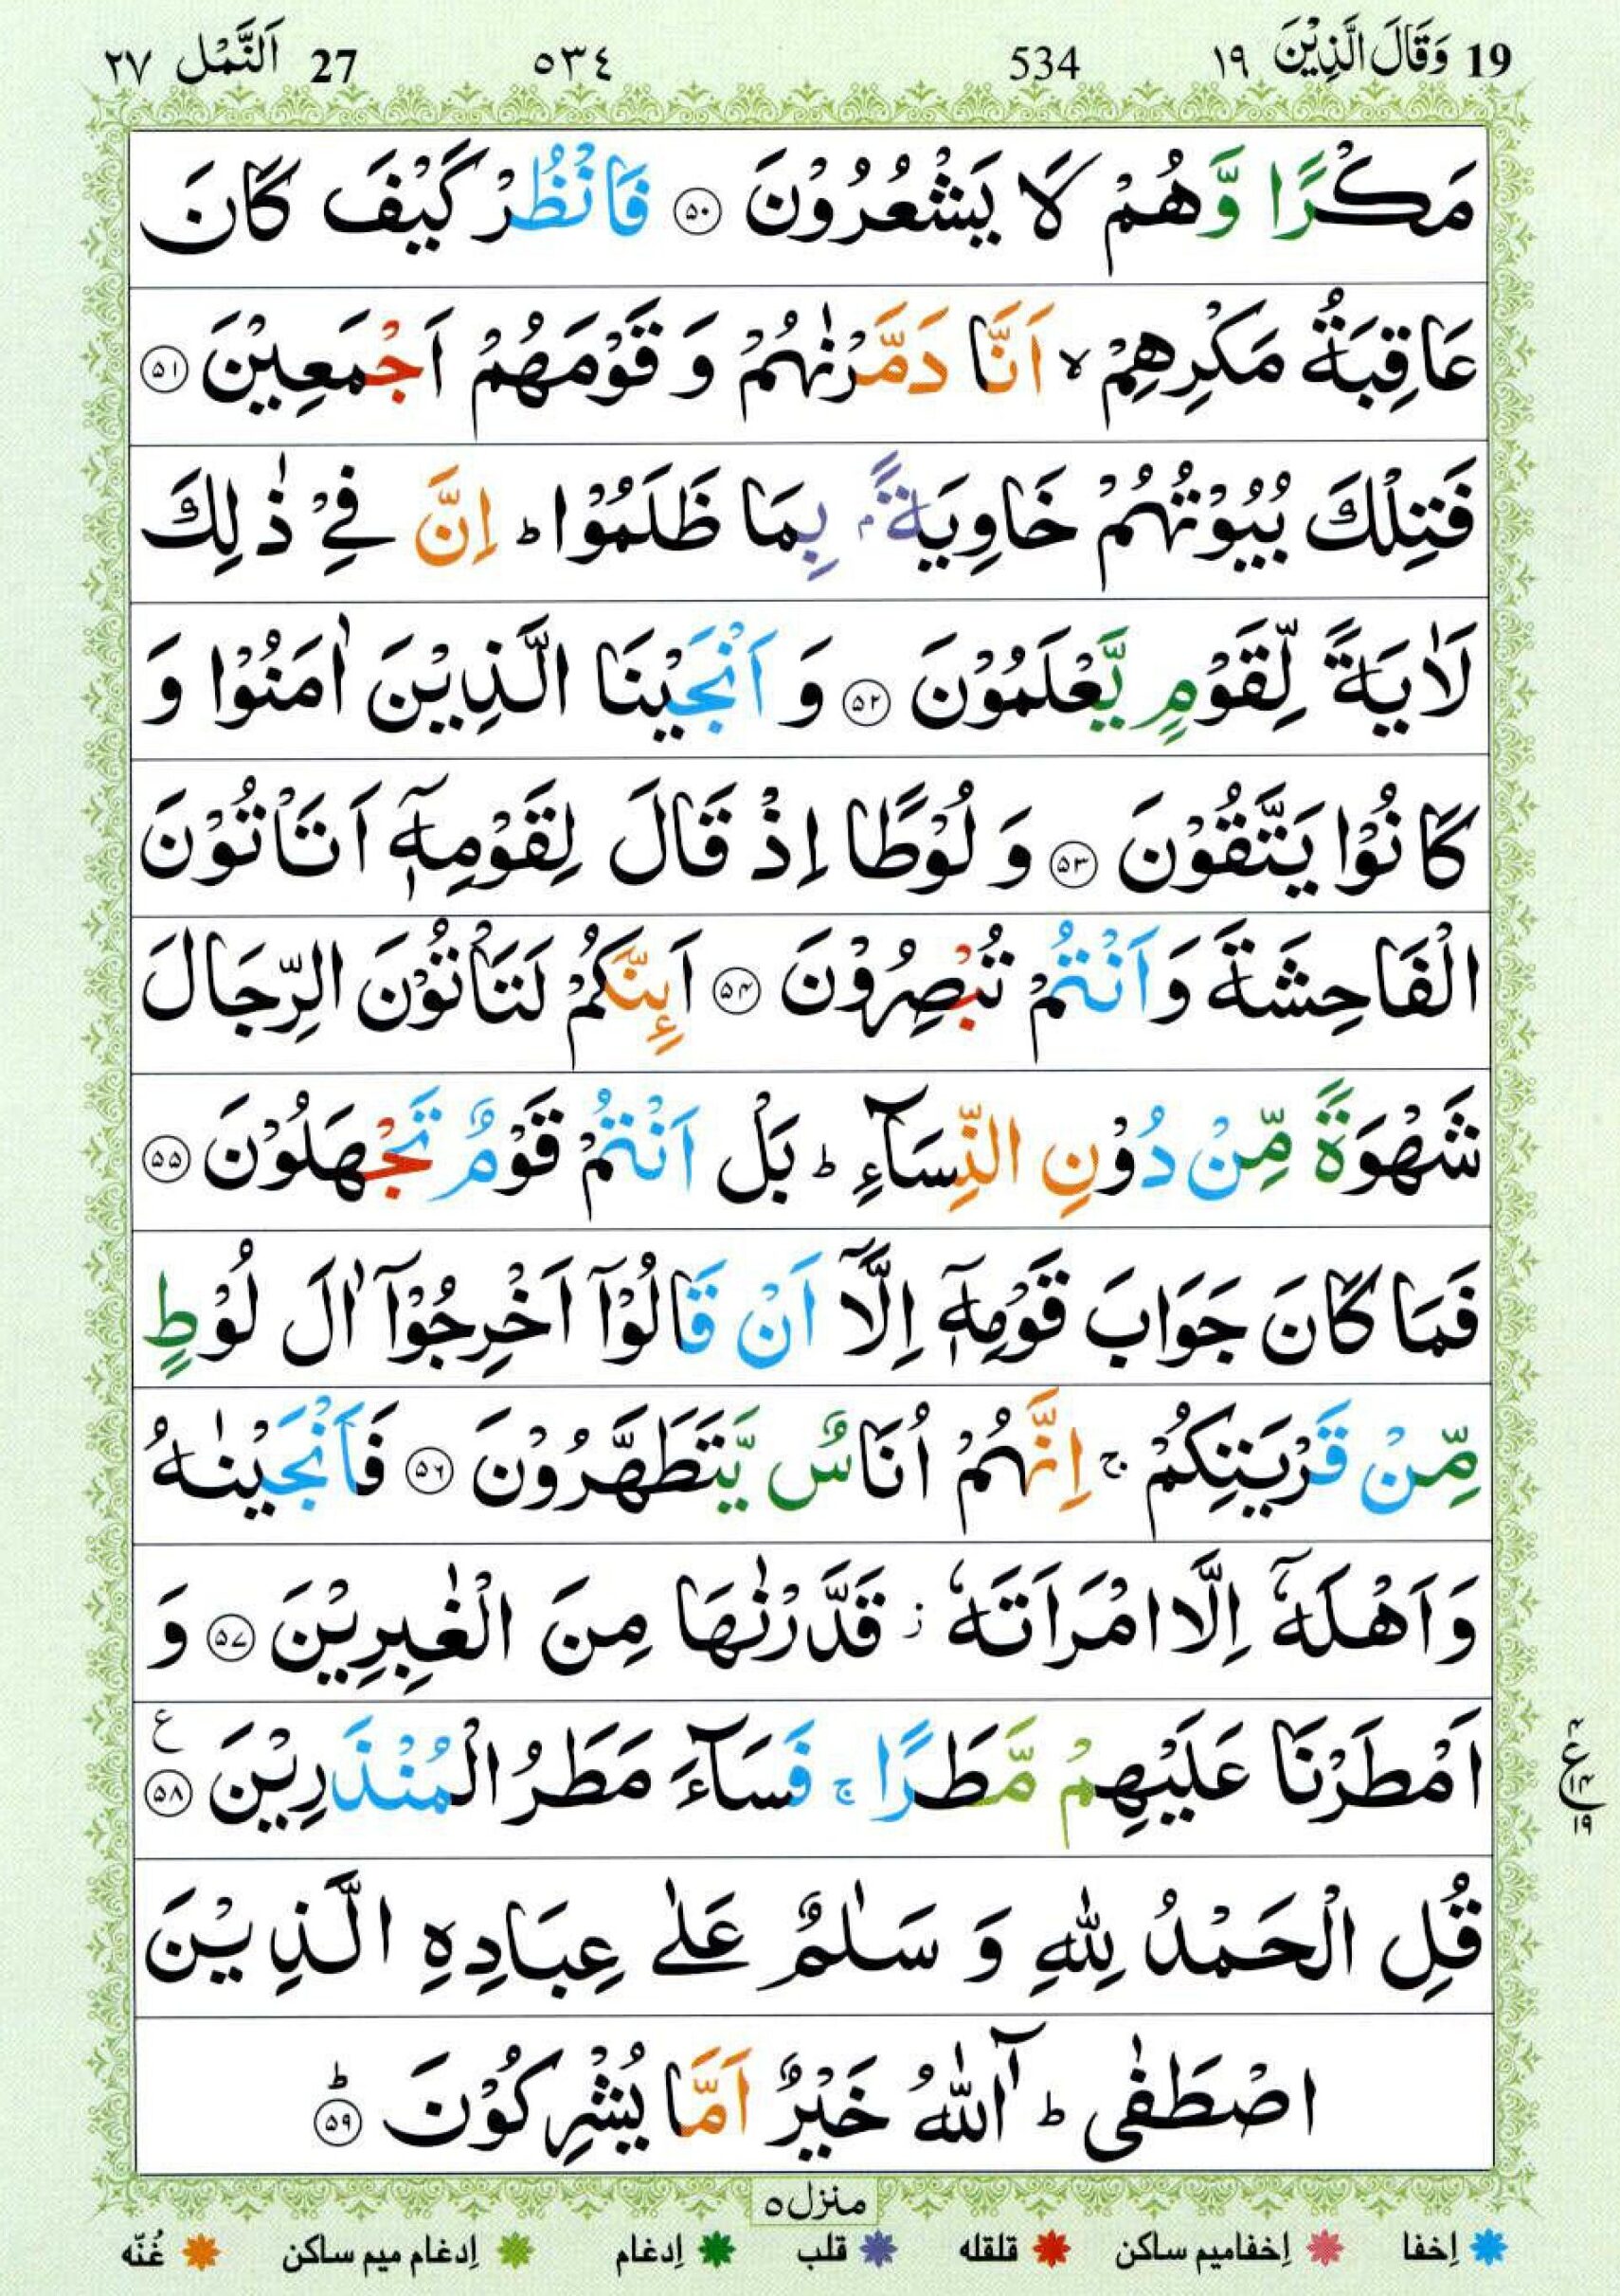 19 وَقَالَ الَّذِيْنَ ١٩ 534 ٥٣٤ 27 اَلنَّمْل ٢٧
مَكْرًا وَّهُمْ لَا يَشْعُرُوْنَ ۵۰ فَانْظُرْ كَيْفَ كَانَ
عَاقِبَةُ مَكْرِهِمْ ۙ اَنَّا دَمَّرْنٰهُمْ وَ قَوْمَهُمْ اَجْمَعِيْنَ ۵۱
فَتِلْكَ بُيُوْتُهُمْ خَاوِيَةًۢ بِمَا ظَلَمُوْا ؕ اِنَّ فِيْ ذٰلِكَ
لَاٰيَةً لِّقَوْمٍ يَّعْلَمُوْنَ ۵۲ وَ اَنْجَيْنَا الَّذِيْنَ اٰمَنُوْا وَ
كَانُوْا يَتَّقُوْنَ ۵۳ وَ لُوْطًا اِذْ قَالَ لِقَوْمِهٖۤ اَتَاْتُوْنَ
الْفَاحِشَةَ وَ اَنْتُمْ تُبْصِرُوْنَ ۵۴ اَىِٕنَّكُمْ لَتَاْتُوْنَ الرِّجَالَ
شَهْوَةً مِّنْ دُوْنِ النِّسَآءِ ؕ بَلْ اَنْتُمْ قَوْمٌ تَجْهَلُوْنَ ۵۵
فَمَا كَانَ جَوَابَ قَوْمِهٖۤ اِلَّاۤ اَنْ قَالُوْۤا اَخْرِجُوْۤا اٰلَ لُوْطٍ
مِّنْ قَرْيَتِكُمْ ۚ اِنَّهُمْ اُنَاسٌ يَّتَطَهَّرُوْنَ ۵۶ فَاَنْجَيْنٰهُ
وَ اَهْلَهٗۤ اِلَّا امْرَاَتَهٗ ؗ قَدَّرْنٰهَا مِنَ الْغٰبِرِيْنَ ۵۷ وَ
اَمْطَرْنَا عَلَيْهِمْ مَّطَرًا ۚ فَسَآءَ مَطَرُ الْمُنْذَرِيْنَ ۵۸ ع
ع ۴ ۱۴ ۱۹
قُلِ الْحَمْدُ لِلّٰهِ وَ سَلٰمٌ عَلٰى عِبَادِهِ الَّذِيْنَ
اصْطَفٰى ؕ آٰللّٰهُ خَيْرٌ اَمَّا يُشْرِكُوْنَ ؕ ۵۹
منزل ۵
اِخفا اِخفامیم ساکن قلقله قلب اِدغام اِدغام میم ساکن غُنّه